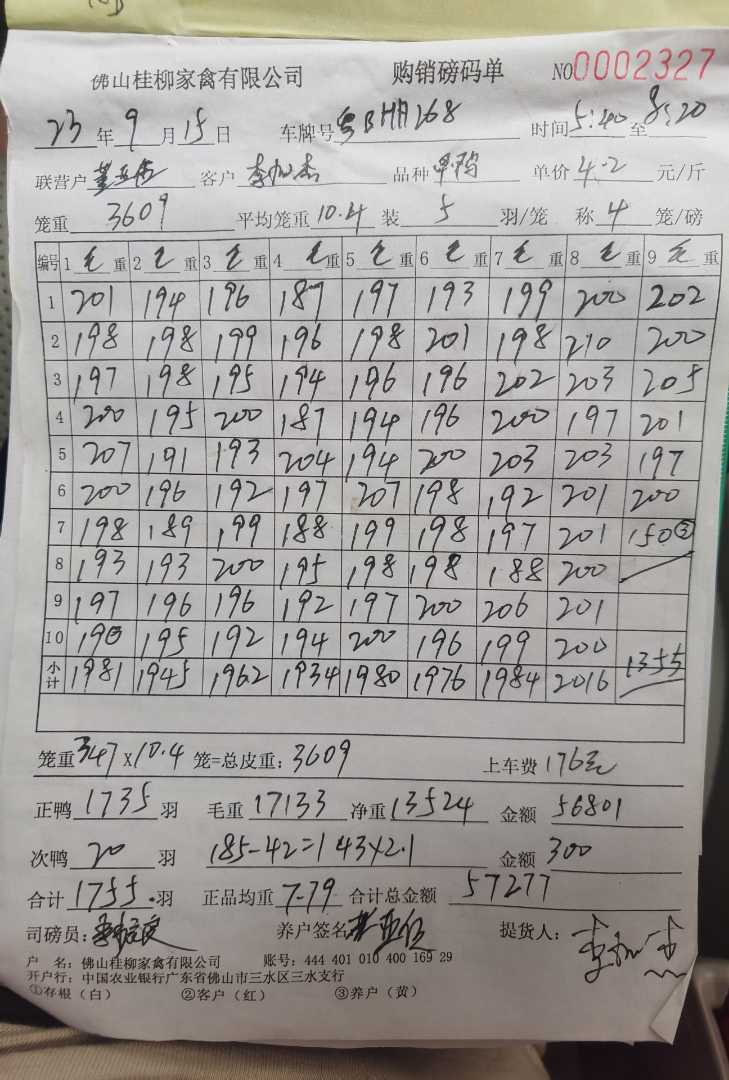 佛山桂柳家禽有限公司 购销磅码单 NO0002327
23年9月15日 车牌号粤BHA268 时间5:40至8:20
联营户 客户 李加杰 品种 单价4.2元/斤
笼重3609 平均笼重10.4装5羽/笼 称4笼/磅
编号 1毛重 2毛重 3毛重 4毛重 5毛重 6毛重 7毛重 8毛重 9毛重
1 201 194 196 187 197 193 199 200 202
2 198 198 199 196 198 201 198 210 200
3 197 198 195 194 196 196 202 203 205
4 200 195 200 187 194 196 200 197 201
5 207 191 193 204 194 200 203 203 197
6 200 196 192 197 207 198 192 201 200
7 198 189 199 188 199 198 197 201 150③
8 193 193 200 195 198 198 188 200
9 197 196 196 192 197 200 206 201
10 190 195 192 194 200 196 199 200
小计 1981 1945 1962 1934 1980 1976 1984 2016 1355
笼重347×10.4笼=总皮重:3609 上车费176元
正鸭1735羽 毛重17133净重13524 金额56801
次鸭20羽 185-42=143×2.1 金额300
合计1755.羽 正品均重7.79 合计总金额57277
司磅员: 养户签名 提货人:李加杰
户 名:佛山桂柳家禽有限公司 账号:444 401 010 400 169 29
开户行:中国农业银行广东省佛山市三水区三水支行
①存根(白) ②客户(红) ③养户(黄)